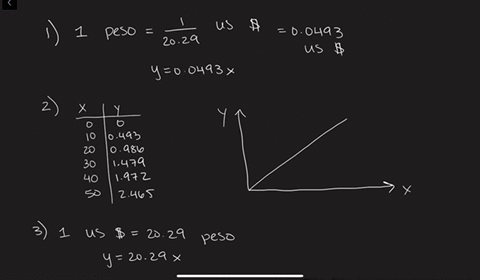 1) 1 peso = 1/20.29 us $ = 0.0493 us $
y = 0.0493x
2) X Y
0 0
10 0.493
20 0.986
30 1.479
40 1.972
50 2.465
Y
X
3) 1 us $ = 20.29 peso
y = 20.29 x